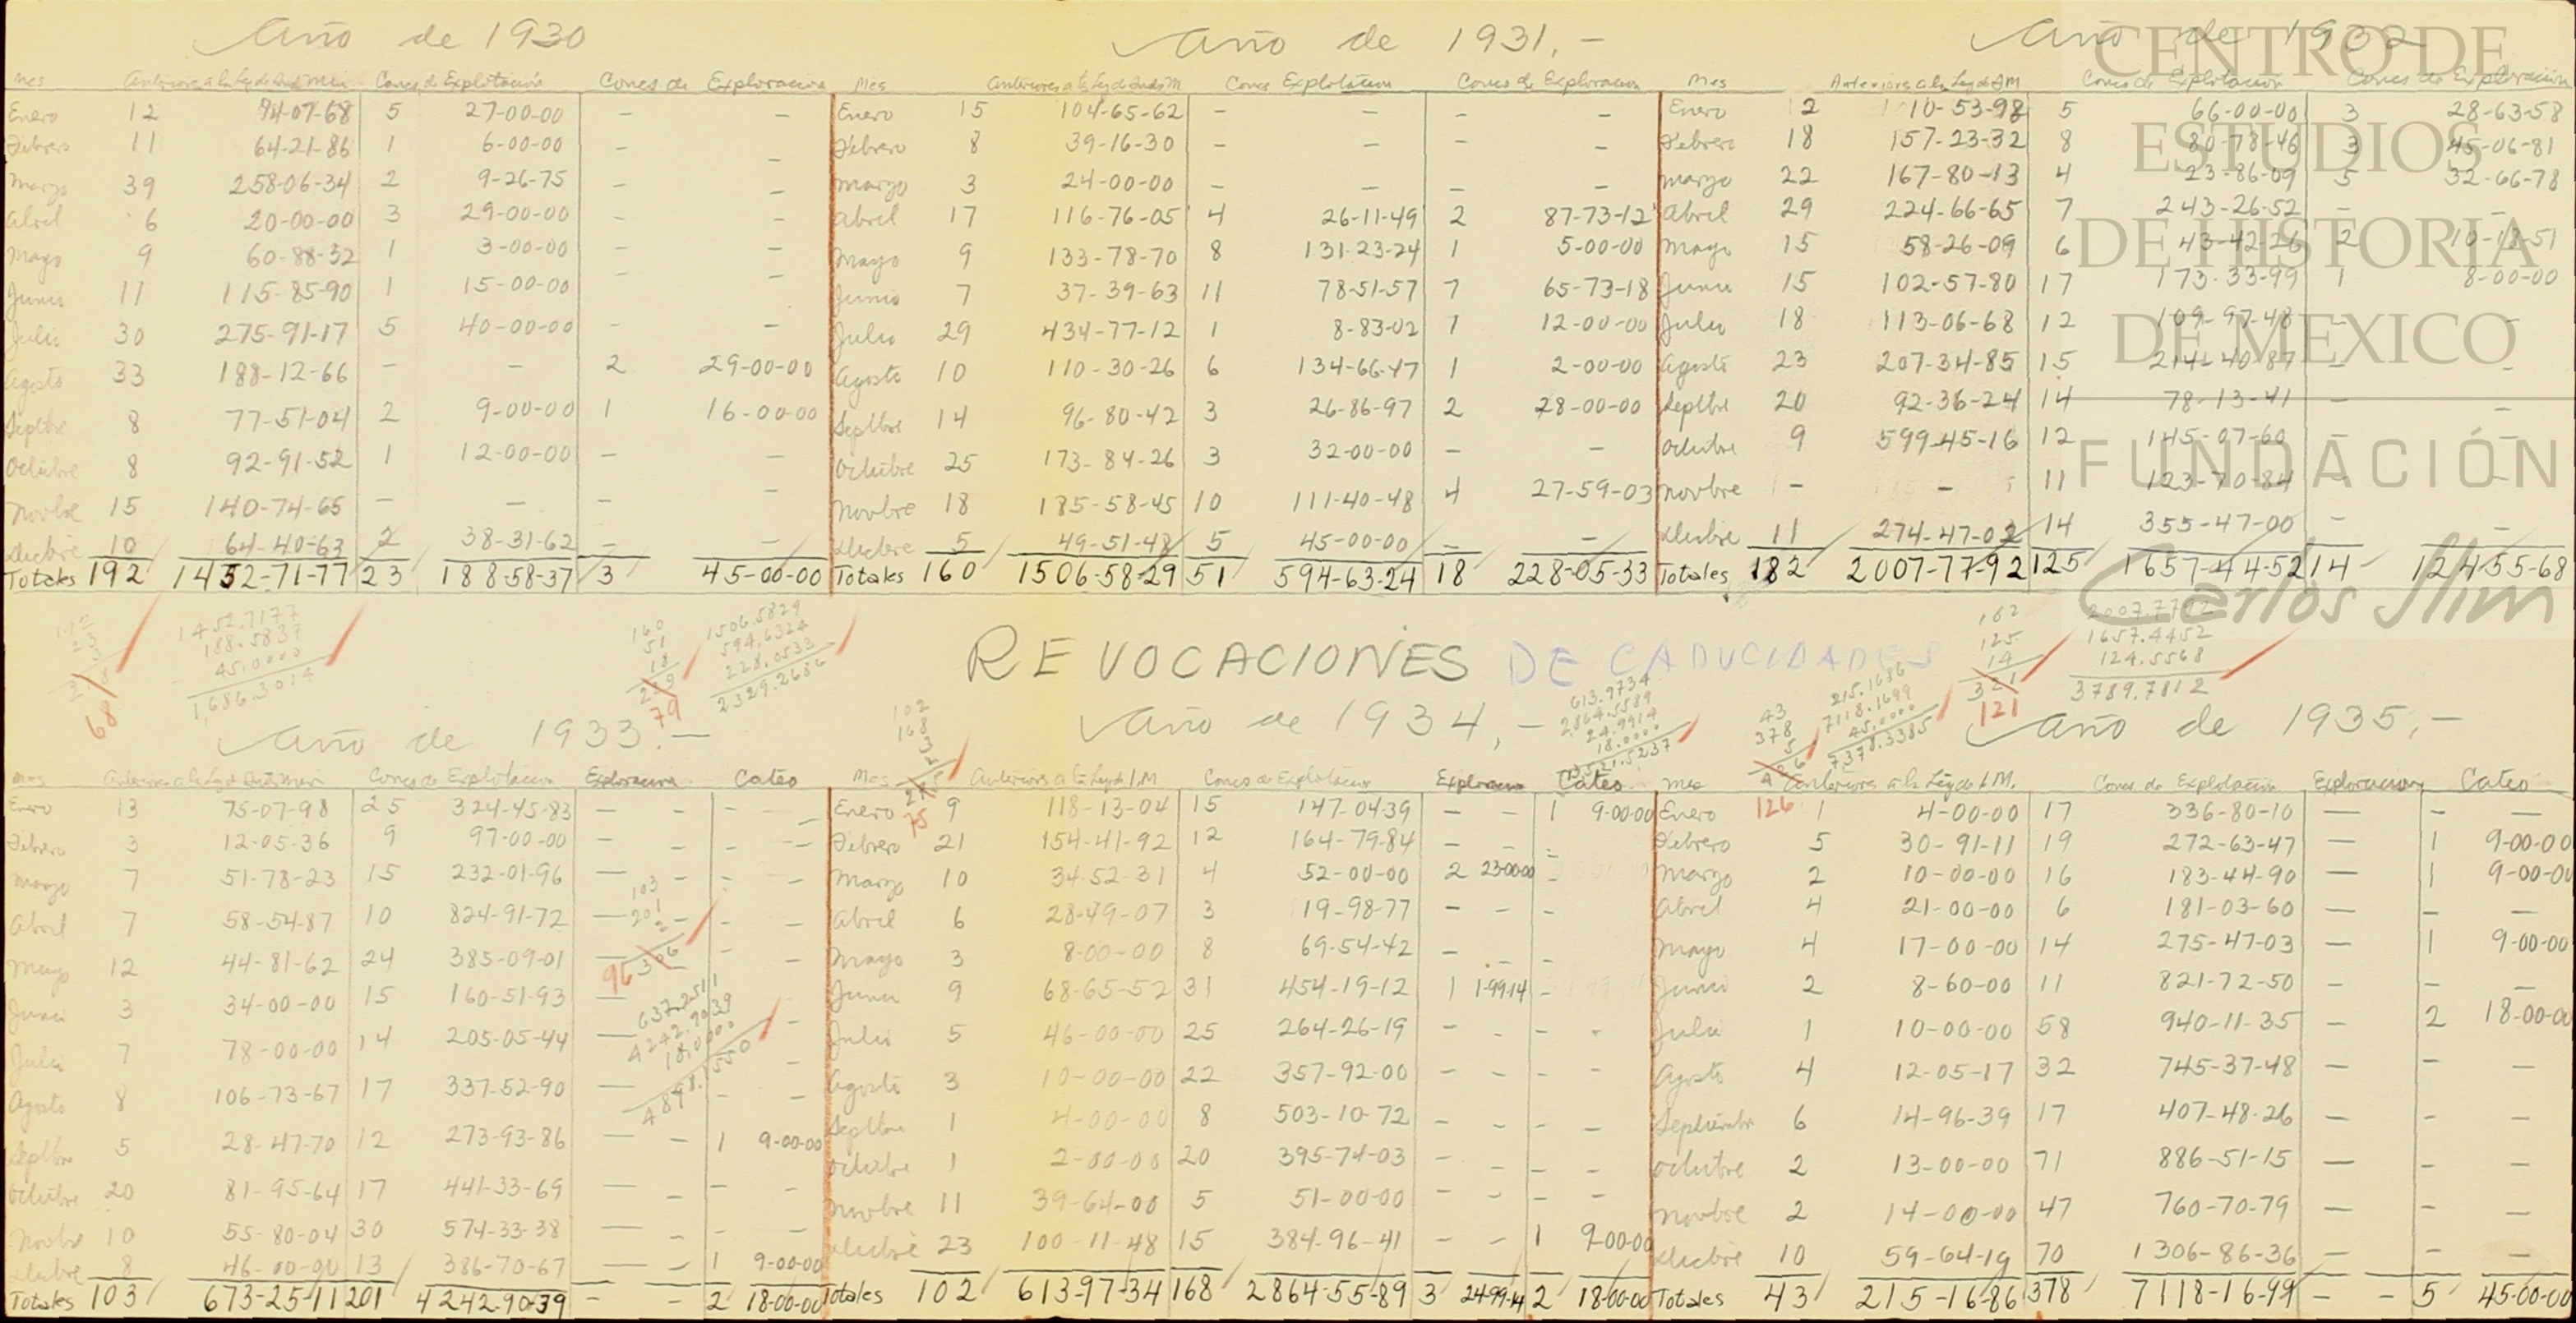 Año de 1930
Año de 1931.-
Año de 1932
Mes Anteriores a la Ley de Inds Min Conces de Explotación Conces de Exploracion
Enero 12 94-07-68 5 27-00-00 - -
Febrero 11 64-21-86 1 6-00-00 - -
Marzo 39 258-06-34 2 9-26-75 - -
Abril 6 20-00-00 3 29-00-00 - -
Mayo 9 60-88-32 1 3-00-00 - -
Junio 11 115-85-90 1 15-00-00 - -
Julio 30 275-91-17 5 40-00-00 - -
Agosto 33 188-12-66 - - 2 29-00-00
Septbre 8 77-51-04 2 9-00-00 1 16-00-00
Octubre 8 92-91-52 1 12-00-00 - -
Novbre 15 140-74-65 - - - -
Dicbre 10 64-40-63 2 38-31-62 - -
Totales 192 1452-71-77 23 188-58-37 3 45-00-00
Mes Anteriores a la Ley de Inds M Conces Explotacion Conces de Exploracion
Enero 15 104-65-62 - - - -
Febrero 8 39-16-30 - - - -
Marzo 3 24-00-00 - - - -
Abril 17 116-76-05 4 26-11-49 2 87-73-12
Mayo 9 133-78-70 8 131-23-24 1 5-00-00
Junio 7 37-39-63 11 78-51-57 7 65-73-18
Julio 29 434-77-12 1 8-83-02 1 12-00-00
Agosto 10 110-30-26 6 134-66-47 1 2-00-00
Septbre 14 96-80-42 3 26-86-97 2 28-00-00
Octubre 25 173-84-26 3 32-00-00 - -
Novbre 18 185-58-45 10 111-40-48 4 27-59-03
Dicbre 5 49-51-48 5 45-00-00 - -
Totales 160 1506-58-29 51 594-63-24 18 228-05-33
Mes Anteriores a la Ley de I M Conces de Explotacion Conces de Exploración
Enero 2 110-53-98 5 66-00-00 3 28-63-58
Febrero 18 157-23-32 8 80-78-46 3 45-06-81
Marzo 22 167-80-13 4 23-86-09 5 32-66-78
Abril 29 224-66-65 7 243-26-52 - -
Mayo 15 58-26-09 6 43-42-26 2 10-18-51
Junio 15 102-57-80 17 173-33-99 1 8-00-00
Julio 18 113-06-68 12 109-97-48 - -
Agosto 23 207-34-85 15 214-40-87 - -
Septbre 20 92-36-24 14 78-13-41 - -
Octubre 9 599-45-16 12 145-07-60 - -
Novbre - - 11 123-70-84 - -
Dicbre 11 274-47-02 14 355-47-00 - -
Totales 182 2007-77-92 125 1657-44-52 14 124-55-68
CENTRO DE
ESTUDIOS
DE HISTORIA
DE MEXICO
FUNDACIÓN
Carlos Slim
192
23
3
218
68
1452.7177
188.5837
45.0000
1,686.3014
160
51
18
229
79
1506.5829
594.6324
228.0533
2329.2686
REVOCACIONES DE CADUCIDADES
125
14
321
121
2007.7792
1657.4452
124.5568
3789.7812
102
168
3
2
75
613.9734
2864.5589
24.9914
18.0000
3521.5237
43
378
5
426
126
215.1686
7118.1699
45.0000
7,378.3385
Año de 1933.-
Año de 1934,-
Año de 1935,-
Mes Anteriores a la Ley de Inds Min Conces de Explotacion Exploracion Cateo
Enero 13 75-07-98 25 324-45-83 - - - -
Febrero 3 12-05-36 9 97-00-00 - - - -
Marzo 7 51-78-23 15 232-01-96 - - - -
Abril 7 58-54-87 10 824-91-72 - - - -
Mayo 12 44-81-62 24 385-09-01 - - - -
Junio 3 34-00-00 15 160-51-93 - - - -
Julio 7 78-00-00 14 205-05-44 - - - -
Agosto 8 106-73-67 17 337-52-90 - - - -
Septbre 5 28-47-70 12 273-93-86 - - 1 9-00-00
Octubre 20 81-95-64 17 441-33-69 - - - -
Novbre 10 55-80-04 30 574-33-38 - - - -
Dicbre 8 46-00-00 13 386-70-67 - - 1 9-00-00
Totales 103 673-25-11 201 4242-90-39 - - 2 18-00-00
103
201
2
306
96
637.2511
4242.9039
18.0000
4898.1550
Mes Anteriores a la Ley de I.M Conces de Explotacion Exploracion Cateo
Enero 9 118-13-04 15 147-04-39 - - 1 9-00-00
Febrero 21 154-41-92 12 164-79-84 - - -
Marzo 10 34-52-31 4 52-00-00 2 23-00-00 -
Abril 6 28-49-07 3 19-98-77 - - -
Mayo 3 8-00-00 8 69-54-42 - - -
Junio 9 68-65-52 31 454-19-12 1 1-99-14 -
Julio 5 46-00-00 25 264-26-19 - - - -
Agosto 3 10-00-00 22 357-92-00 - - - -
Septbre 1 4-00-00 8 503-10-72 - - - -
Octubre 1 2-00-00 20 395-74-03 - - - -
Novbre 11 39-64-00 5 51-00-00 - - - -
Dicbre 23 100-11-48 15 384-96-41 - - 1 9-00-00
Totales 102 613-97-34 168 2864-55-89 3 24-99-14 2 18-00-00
Mes Anteriores a la Ley de I.M. Conces de Explotacion Exploracion Cateo
Enero 1 4-00-00 17 336-80-10 - - -
Febrero 5 30-91-11 19 272-63-47 - 1 9-00-00
Marzo 2 10-00-00 16 183-44-90 - 1 9-00-00
Abril 4 21-00-00 6 181-03-60 - - -
Mayo 4 17-00-00 14 275-47-03 - 1 9-00-00
Junio 2 8-60-00 11 821-72-50 - - -
Julio 1 10-00-00 58 940-11-35 - 2 18-00-00
Agosto 4 12-05-17 32 745-37-48 - - -
Septiembre 6 14-96-39 17 407-48-26 - - -
Octubre 2 13-00-00 71 886-51-15 - - -
Novbre 2 14-00-00 47 760-70-79 - - -
Dicbre 10 59-64-19 70 1306-86-36 - - -
Totales 43 215-16-86 378 7118-16-99 - - 5 45-00-00